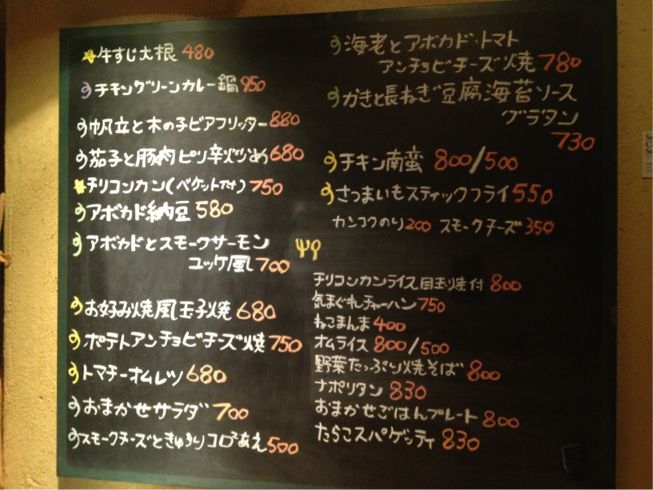 牛すじ大根 480
チキングリーンカレー鍋 950
帆立と木の子ビアフリッター 880
茄子と豚肉ピリ辛炒め 680
チリコンカン(バケット付) 750
アボカド納豆 580
アボカドとスモークサーモン
ユッケ風 700
お好み焼風玉子焼 680
ポテトアンチョビチーズ焼 750
トマチーオムレツ 680
おまかせサラダ 700
スモークチーズときゅうりコロコロあえ 500
海老とアボカド・トマト
アンチョビチーズ焼 780
かきと長ねぎ豆腐海苔ソース
グラタン
730
チキン南蛮 800/500
さつまいもスティックフライ 550
カンコクのり 200 スモークチーズ 350
チリコンカンライス目玉焼付 800
気まぐれチャーハン 750
ねこまんま 400
オムライス 800/500
野菜たっぷり焼そば 800
ナポリタン 830
おまかせごはんプレート 800
たらこスパゲッティ 830